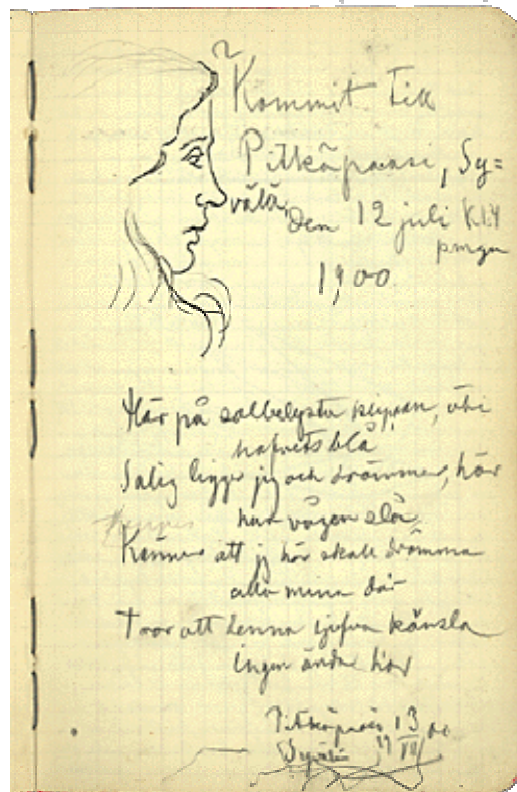 Kommit till
Pitkäpaasi, Sy=
välä, den 12 juli Kl. 4
1900.
Här på solbelysta klippan, uti
hafvets blå
Salig ligger jag och drömmer, hör
hur vågen slå,
Känner att jag här skall drömma
alla mina dar
Tror att denna ljufva känsla
ingen ände har
Pitkäpaasi 13
VII 00